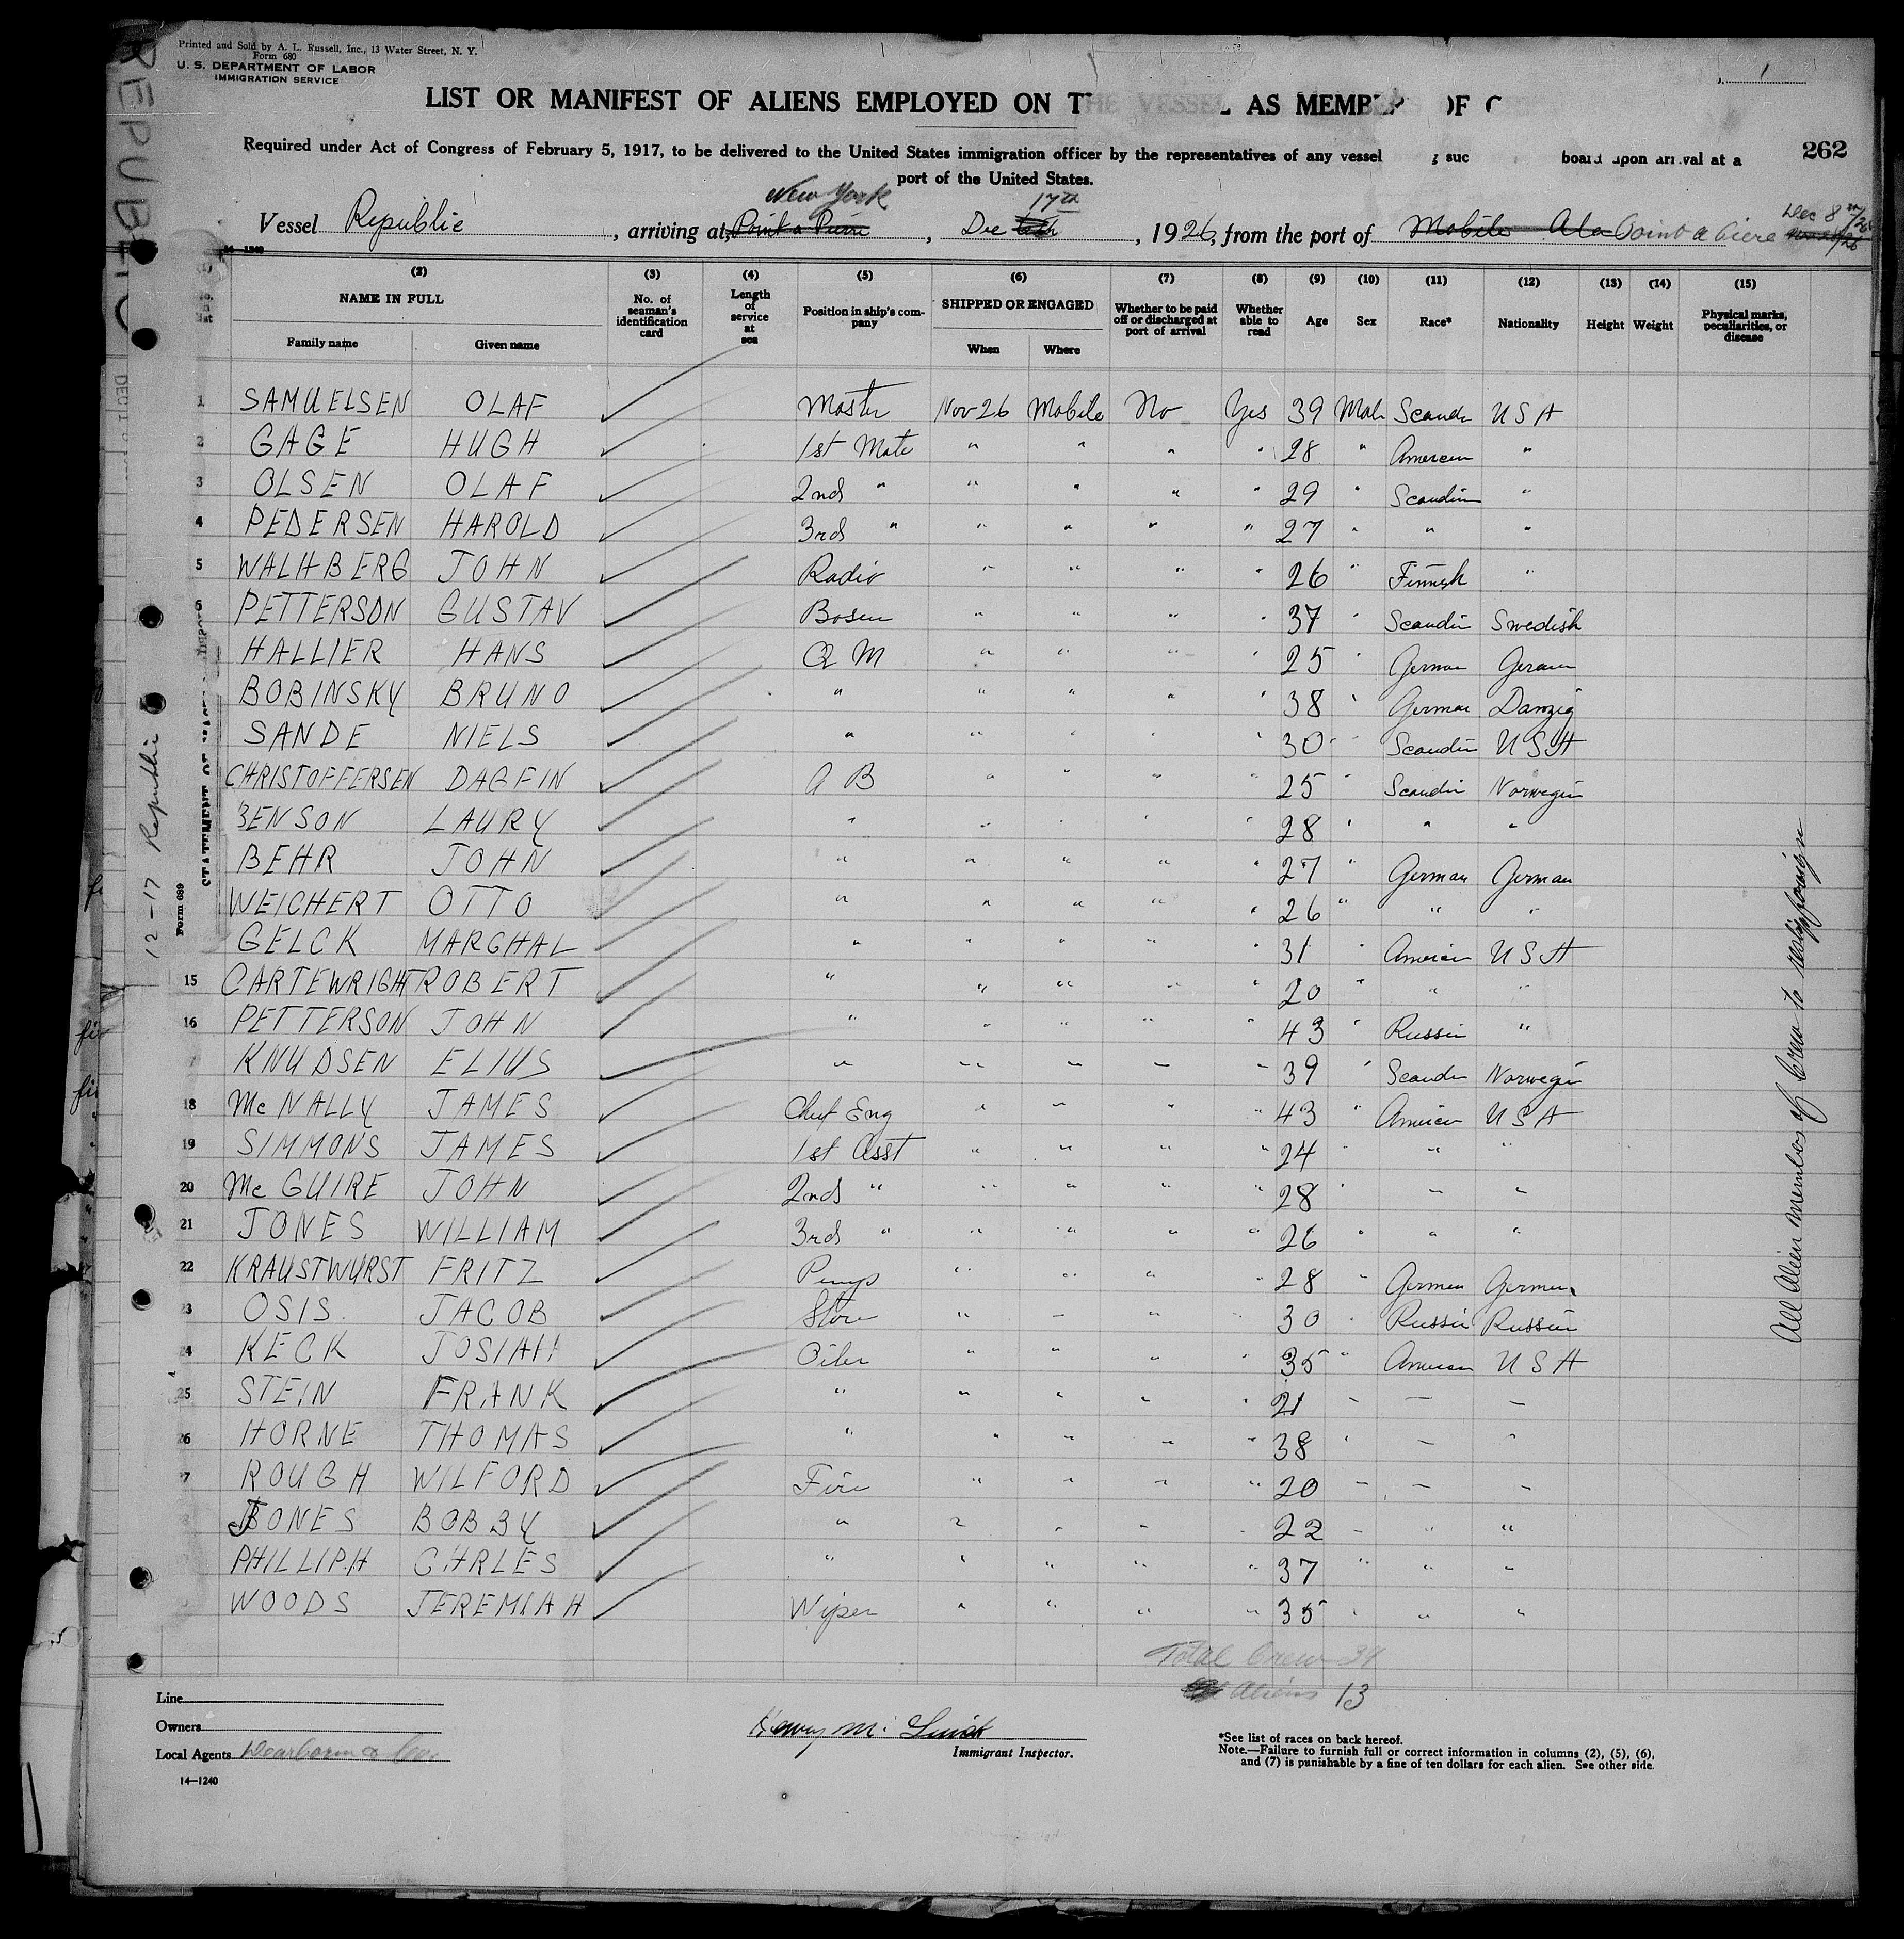 Printed and Sold by A. L. Russell, Inc., 13 Water Street, N. Y.
Form 680
U. S. DEPARTMENT OF LABOR
IMMIGRATION SERVICE
1
LIST OR MANIFEST OF ALIENS EMPLOYED ON THE VESSEL AS MEMBERS OF
262
Required under Act of Congress of February 5, 1917, to be delivered to the United States immigration officer by the representatives of any vessel suc board upon arrival at a
port of the United States.
New York 17th
Vessel Republic, arriving at, Point a Pierre, Dec, 1926, from the port of Mobile Ala Point a Piere Dec 8th/26
(2) (3) (4) (5) (6) (7) (8) (9) (10) (11) (12) (13) (14) (15)
NAME IN FULL No. of seaman's identification card Length of service at sea Position in ship's company SHIPPED OR ENGAGED Whether to be paid off or discharged at port of arrival Whether able to read Age Sex Race* Nationality Height Weight Physical marks, peculiarities, or disease
Family name Given name When Where
1 SAMUELSEN OLAF Master Nov 26 Mobile No Yes 39 Male Scandi USA
2 GAGE HUGH 1st Mate " " " " 28 " American "
3 OLSEN OLAF 2nd " " " " " 29 " Scandin "
4 PEDERSEN HAROLD 3rd " " " " " 27 " " "
5 WALHBERG JOHN Radio " " " " 26 " Finnish "
6 PETTERSON GUSTAV Bosun " " " " 37 " Scandin Swedish
HALLIER HANS Q M " " " " 25 " German German
BOBINSKY BRUNO " " " " " 38 " German Danzig
SANDE NIELS " " " " " 30 " Scandin USA
CHRISTOFFERSEN DAGFIN A B " " " " 25 " Scandin Norwegin
BENSON LAURY " " " " " 28 " " "
BEHR JOHN " " " " " 27 " German German
WEICHERT OTTO " " " " " 26 " " "
GELCK MARGHAL " " " " " 31 " American USA
15 CARTEWRIGHT ROBERT " " " " " 20 " " "
16 PETTERSON JOHN " " " " " 43 " Russin "
KNUDSEN ELIUS " " " " " 39 " Scandin Norwegin
18 McNALLY JAMES Chief Eng " " " " 43 " American USA
19 SIMMONS JAMES 1st Asst " " " " 24 " " "
20 McGUIRE JOHN 2nd " " " " " 28 " " "
21 JONES WILLIAM 3rd " " " " " 26 " " "
22 KRAUSTWURST FRITZ Pump " " " " 28 " German German
23 OSIS JACOB Store " " " " 30 " Russin Russin
24 KECK JOSIAH Oiler " " " " 35 " American USA
25 STEIN FRANK " " " " " 21 " " "
26 HORNE THOMAS " " " " " 38 " " "
27 ROUGH WILFORD Fire " " " " 20 " " "
JONES BOBBY " " " " " 22 " " "
PHILLIPH CHRLES " " " " " 37 " " "
WOODS JEREMIAH Wiper " " " " 35 " " "
Total Crew 34
Aliens 13
All Alien members of Crew to reship foreign
REPUBLIC
12-17 Republic
Form 689
Line
Owners
Local Agents Dearborn & Co.
Immigrant Inspector.
14—1240
*See list of races on back hereof.
Note.—Failure to furnish full or correct information in columns (2), (5), (6),
and (7) is punishable by a fine of ten dollars for each alien. See other side.